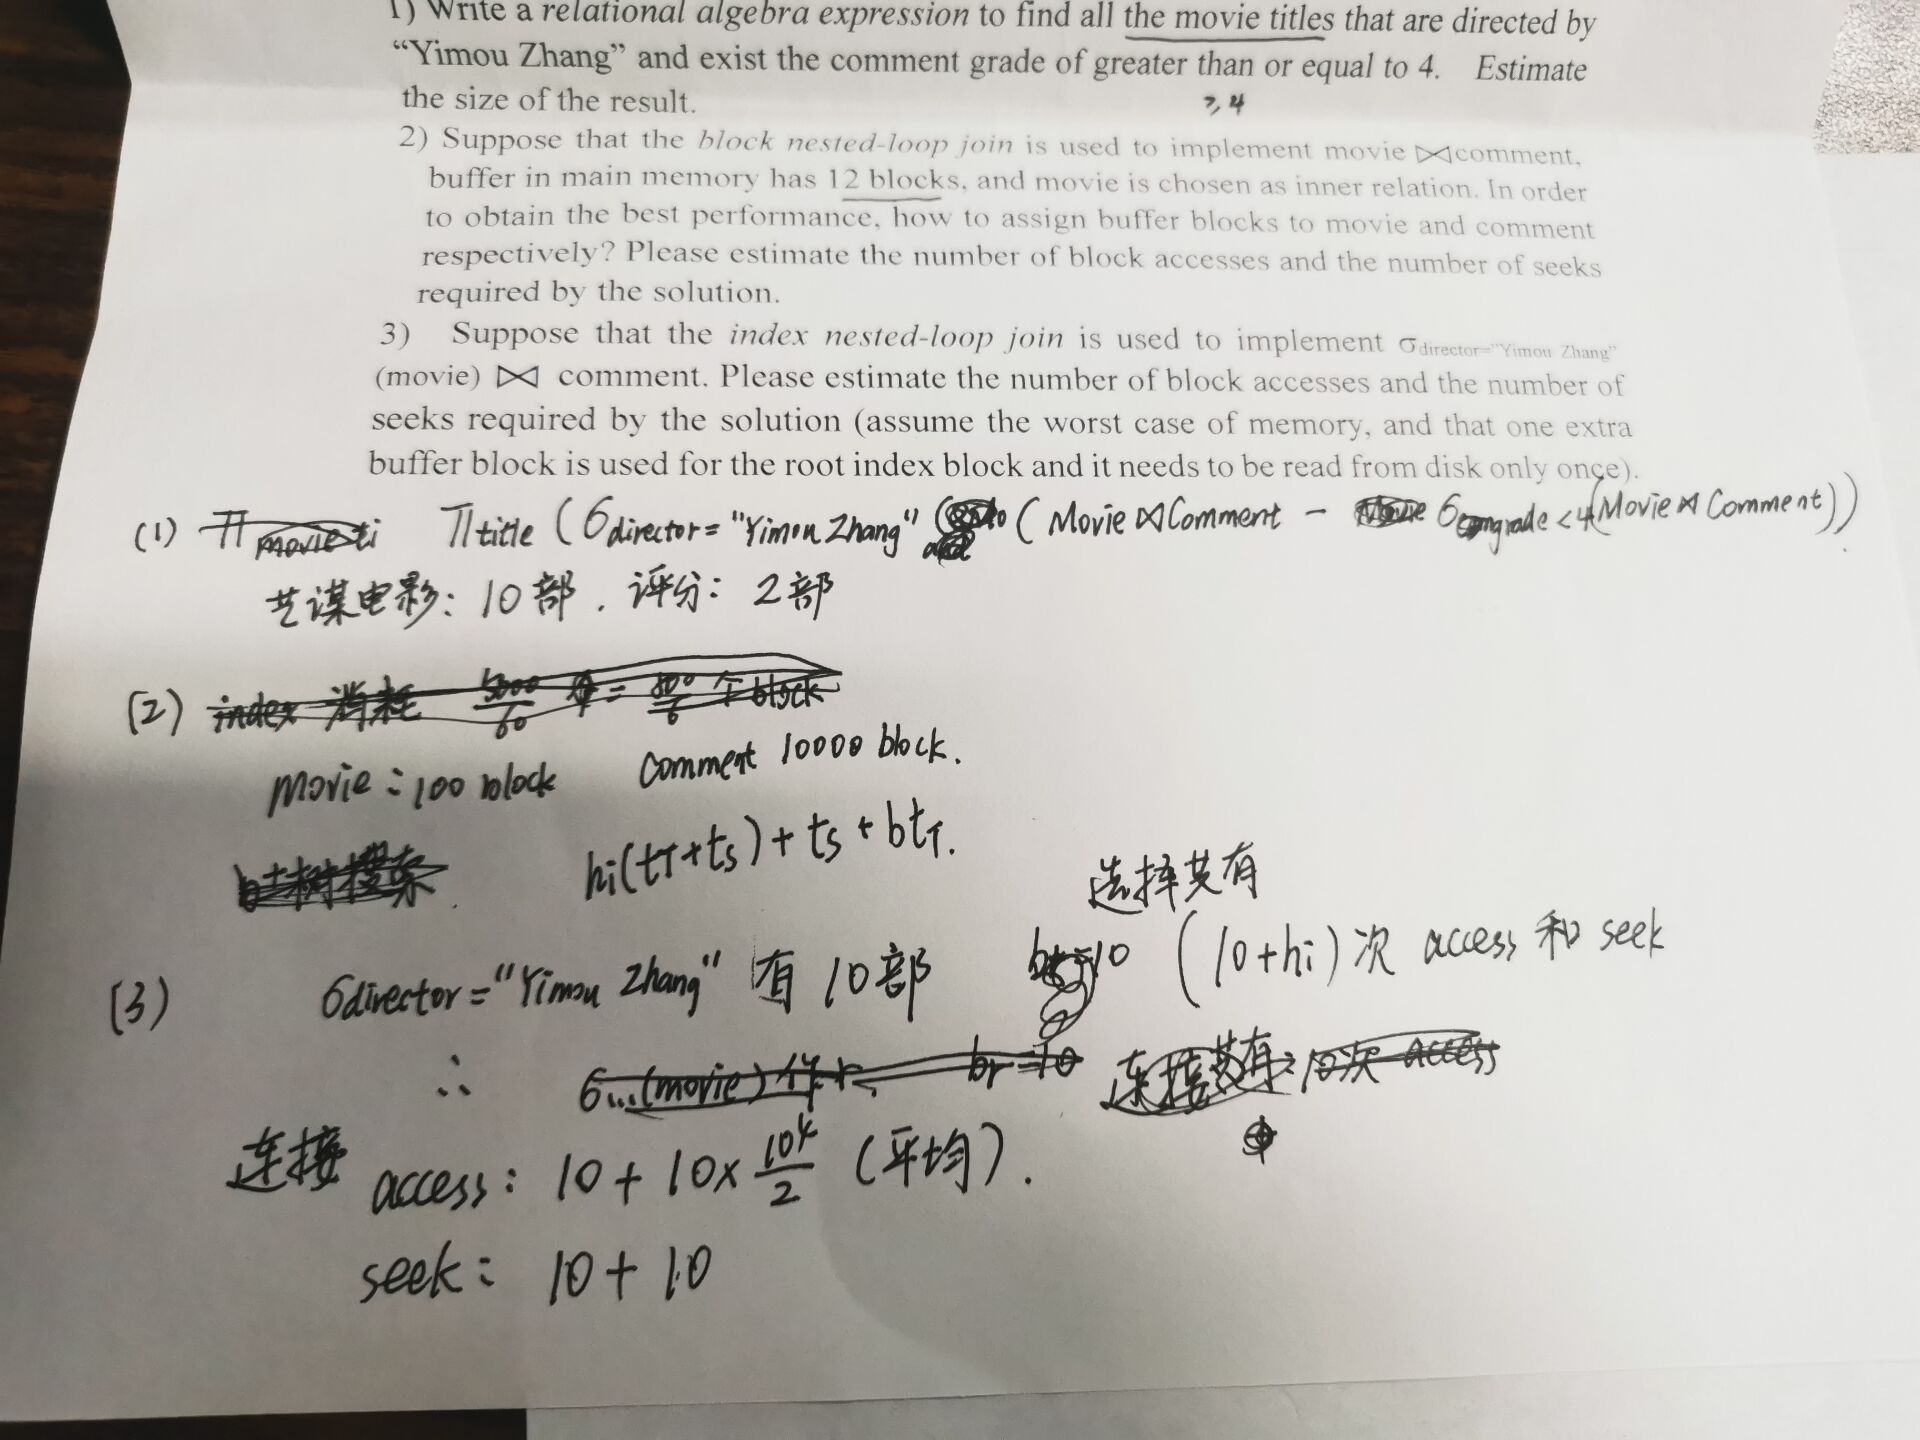 1) Write a relational algebra expression to find all the movie titles that are directed by
“Yimou Zhang” and exist the comment grade of greater than or equal to 4. Estimate
the size of the result.
≥ 4
2) Suppose that the block nested-loop join is used to implement movie ⋈comment,
buffer in main memory has 12 blocks, and movie is chosen as inner relation. In order
to obtain the best performance, how to assign buffer blocks to movie and comment
respectively? Please estimate the number of block accesses and the number of seeks
required by the solution.
3) Suppose that the index nested-loop join is used to implement σdirector="Yimou Zhang"
(movie) ⋈ comment. Please estimate the number of block accesses and the number of
seeks required by the solution (assume the worst case of memory, and that one extra
buffer block is used for the root index block and it needs to be read from disk only once).
(1) Π movie ti Π title (σ director = "Yimou Zhang" (Movie ⋈ Comment - σ grade < 4 (Movie ⋈ Comment))
艺谋电影: 10部. 评分: 2部
(2) index 消耗 5000/60 个 = 500/6 个 block
Movie: 100 block comment 10000 block.
b+树搜索 hi(tT+ts)+ts+btT.
选择共有
(3) σdirector="Yimou Zhang" 有 10部 (10+hi)次 access 和 seek
∴ σ...(movie) br=10 连接共有: 10次 access
连接 access: 10+10×10⁴/2 (平均).
seek: 10+10